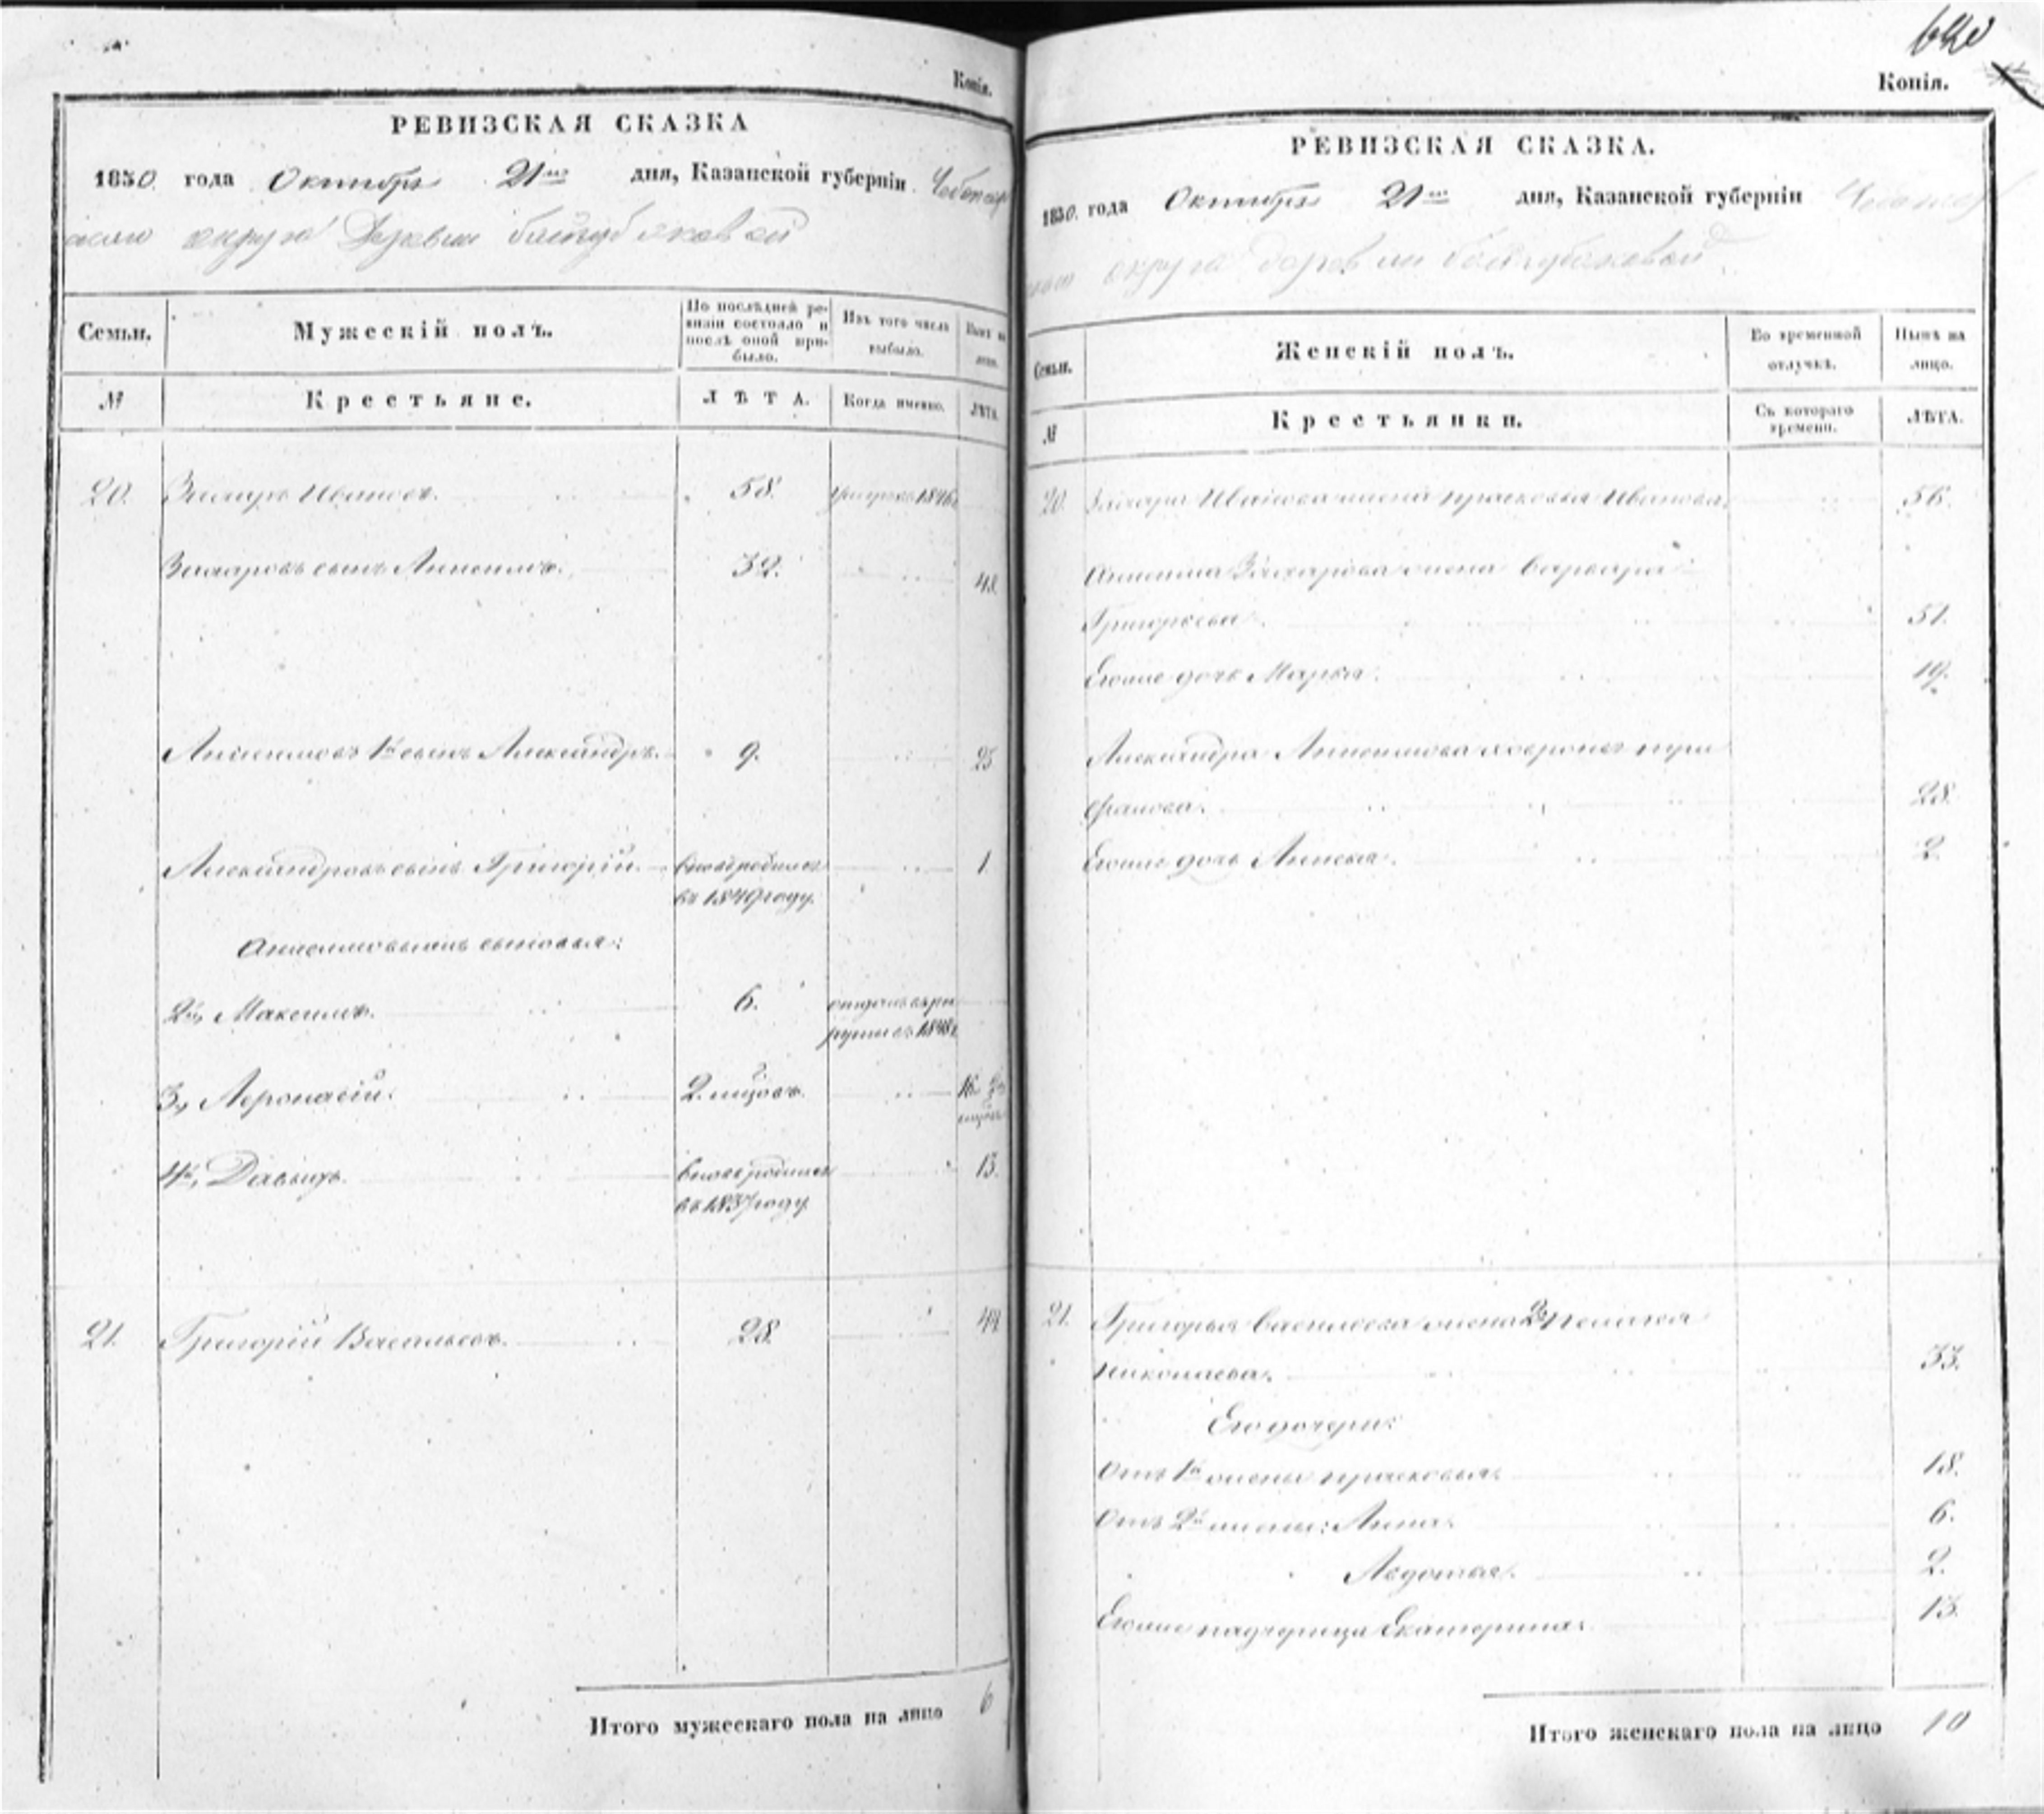 Копія.
РЕВИЗСКАЯ СКАЗКА
1850. года Октября 21го дня, Казанской губерніи Чебоксар
скаго округа Деревни
Семьи.
Мужескій полъ.
По послѣдней ре-
визіи состояло и
послѣ оной при-
было.
Изъ того числа
выбыло.
Нынѣ на
лицо.
№
Крестьяне.
ЛѢТА.
Когда именно.
ЛѢТА.
20. Захаръ Ивановъ. 58. умеръ въ 1846г.
Захаровъ сынъ Анисимъ. 32. 48
Анисимовъ 1й сынъ Александръ. 9. 25
Александровъ сынъ Григорій. вновь родился 1
въ 1849 году.
Анисимовы сыновья:
2й, Максимъ. 6. отданъ въ рек
руты въ 1848г.
3й, Афонасій. 2. мцовъ. 16
4й, Давыдъ. вновь родился 13.
въ 1837 году
21. Григорій Васильевъ. 28. 44
Итого мужескаго пола на лицо 6
Копія.
РЕВИЗСКАЯ СКАЗКА.
1850. года Октября 21го дня, Казанской губерніи Чебоксар
скаго округа деревни
Семьи.
Женскій полъ.
Во временной
отлучкѣ.
Нынѣ на
лицо.
№
Крестьянки.
Съ котораго
времени.
ЛѢТА.
20. Захара Иванова жена Прасковья Иванова. 56.
Анисима Захарова жена Варвара
Григорьева. 51.
Егоже дочь Марья. 19.
Александра Анисимова
28.
Егоже дочь 2.
21. Григорья Васильева жена 2я Пелагея
Николаева. 33.
Его дочери:
Отъ 1й жены Прасковья. 18.
Отъ 2й жены: Анна. 6.
Авдотья. 2.
Егоже падчерица Екатерина. 13.
Итого женскаго пола на лицо 10